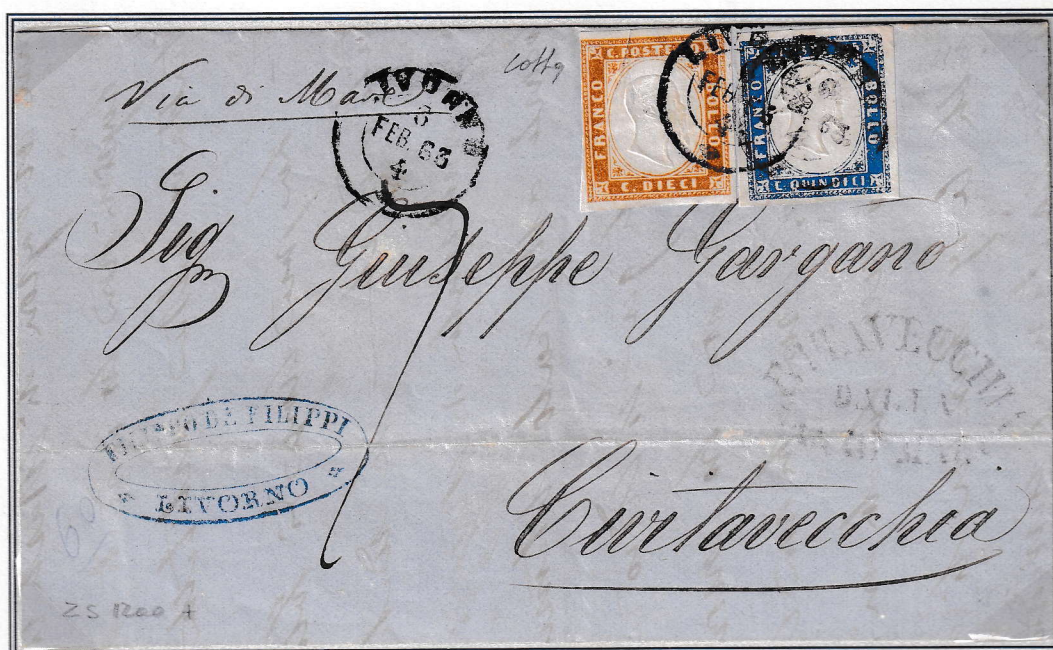 Via di Mare
LIVORNO
FEB. 63
4
C. POSTE
FRANCO
BOLLO
C. DIECI
FEB
FRANCO
BOLLO
C. QUINDICI
Sig
Giuseppe Gargano
FILIPPO DE FILIPPI
LIVORNO
Civitavecchia
60
ZS 1200 +